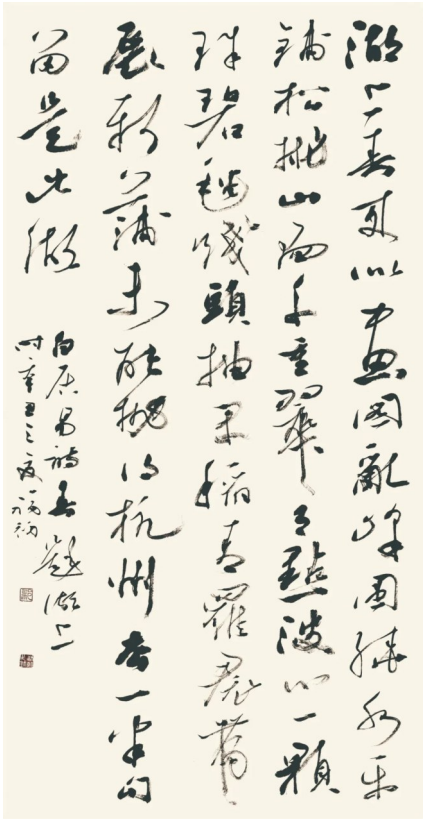 湖上春來似畫圖亂峰围繞水平
鋪松排山面千重翠月點波心一顆
珠碧毯線頭抽早稻青羅裙帶
展新蒲未能抛得杭州去一半勾
留是此湖
白居易詩春題湖上
时辛丑之夏